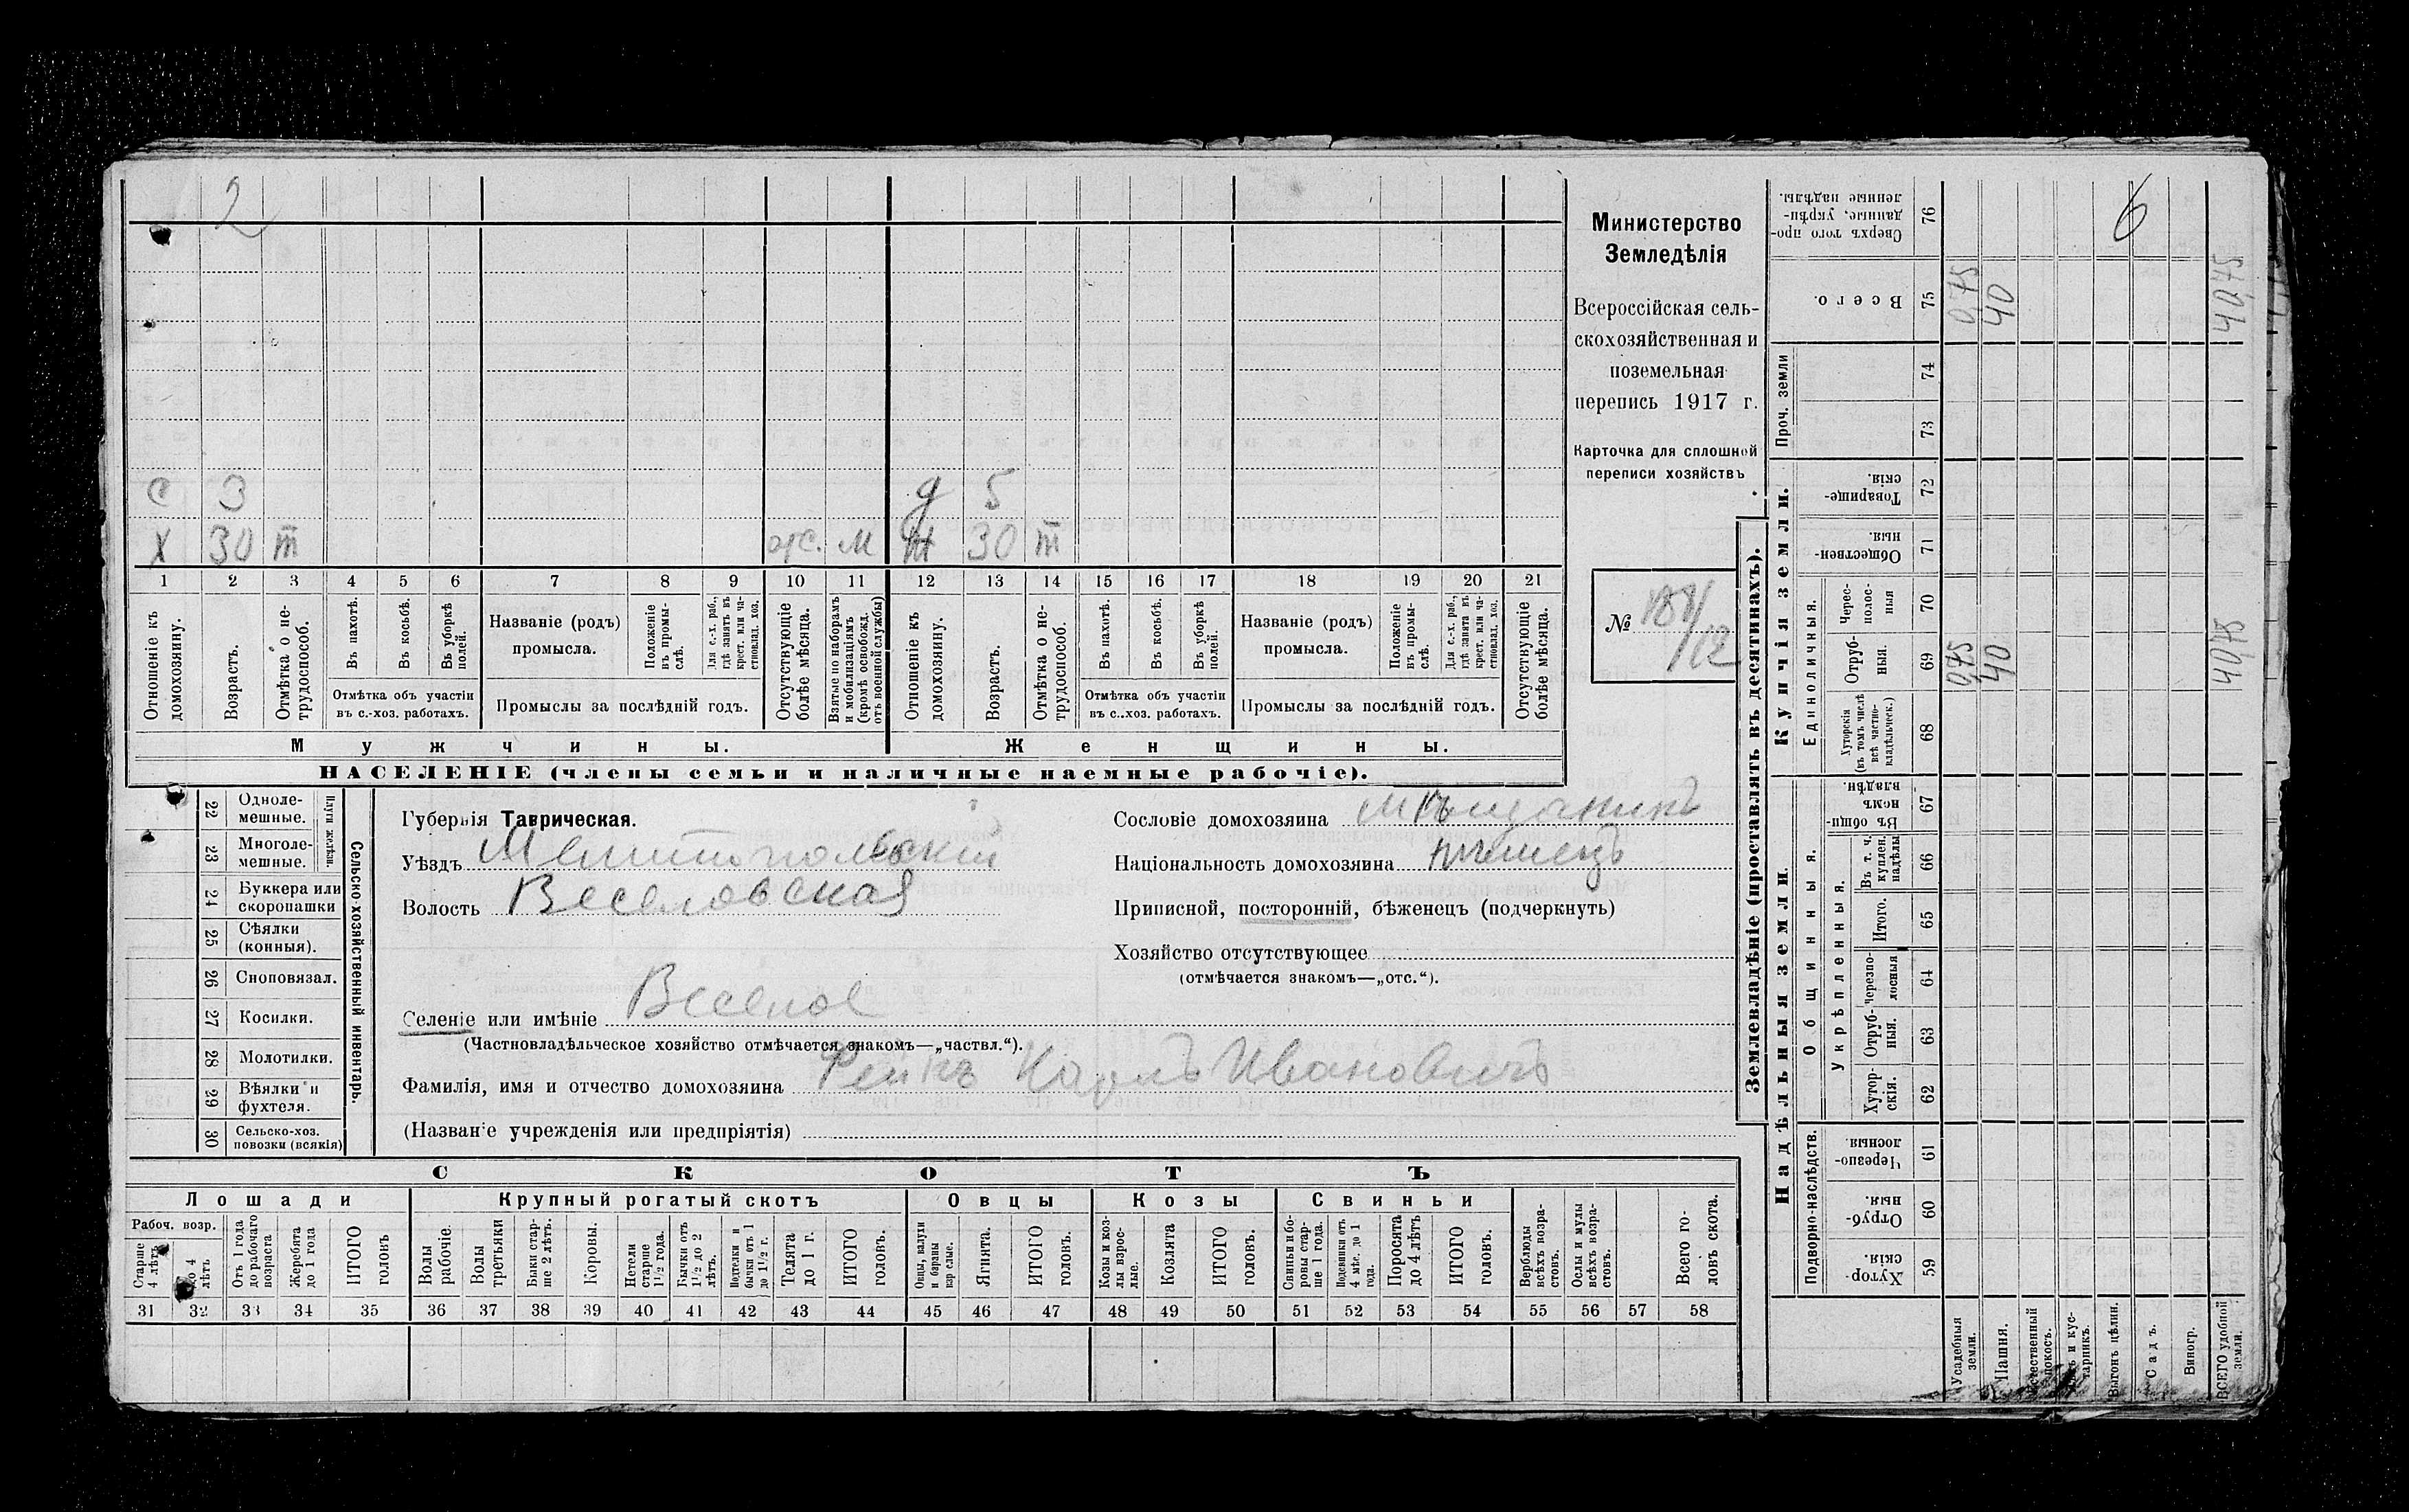 2
6
с 3 д 5
Х 30 т отс. м ж 30 т
1 2 3 4 5 6 7 8 9 10 11 12 13 14 15 16 17 18 19 20 21
Отношеніе къ домохозяину.
Возрастъ.
Отмѣтка о не-трудоспособ.
Въ пахотѣ.
Въ косьбѣ.
Въ уборкѣ полей.
Отмѣтка объ участіи
въ с.-хоз. работахъ.
Названіе (родъ)
промысла.
Положеніе въ промы-слѣ.
Для с.-х. раб., гдѣ занятъ въ крест. или ча-стновлад. хоз.
Промыслы за послѣдній годъ.
Отсутствующіе болѣе мѣсяца.
Взятые по наборамъ и мобилизаціямъ (кромѣ освобожд. отъ военной службы)
Отношеніе къ домохозяину.
Возрастъ.
Отмѣтка о не-трудоспособ.
Въ пахотѣ.
Въ косьбѣ.
Въ уборкѣ полей.
Отмѣтка объ участіи
въ с.-хоз. работахъ.
Названіе (родъ)
промысла.
Положеніе въ промы-слѣ.
Для с.-х. раб., гдѣ занята въ крест. или ча-стновлад. хоз.
Промыслы за послѣдній годъ.
Отсутствующіе болѣе мѣсяца.
Мужчины. Женщины.
НАСЕЛЕНІЕ (члены семьи и наличные наемные рабочіе).
Министерство
Земледѣлія
Всероссійская сель-
скохозяйственная и
поземельная
перепись 1917 г.
Карточка для сплошной
переписи хозяйствъ
№
/12
Сельско-хозяйственный инвентарь.
Плуги желѣзн.
22 Одноле-мешные.
23 Многоле-мешные.
24 Буккера или скоропашки
25 Сѣялки (конныя).
26 Сноповязал.
27 Косилки.
28 Молотилки.
29 Вѣялки и фухтеля.
30 Сельско-хоз. повозки (всякія)
Губернія Таврическая.
Уѣздъ Мелитопольскій
Волость Веселовская
Селеніе или имѣніе Веселое
(Частновладѣльческое хозяйство отмѣчается знакомъ—„частвл.“).
Фамилія, имя и отчество домохозяина Рейхъ Карлъ Ивановичъ
(Названіе учрежденія или предпріятія)
Сословіе домохозяина мѣщанинъ
Національность домохозяина нѣмецъ
Приписной, посторонній, бѣженецъ (подчеркнуть)
Хозяйство отсутствующее
(отмѣчается знакомъ—„отс.“).
СКОТЪ
Лошади Крупный рогатый скотъ Овцы Козы Свиньи
Рабоч. возр.
Старше 4 лѣтъ
До 4 лѣтъ
Отъ 1 года до рабочаго возраста
Жеребята до 1 года
ИТОГО головъ
Волы рабочіе.
Волы третьяки
Быки стар-ше 2 лѣтъ.
Коровы.
Нетели старше 1½ года.
Бычки отъ 1½ до 2 лѣтъ.
Подтелки и бычки отъ 1 до 1½ г.
Телята до 1 г.
ИТОГО головъ.
Овцы, валухи и бараны взрослые.
Ягнята.
ИТОГО головъ.
Козы и коз-лы взрос-лые.
Козлята
ИТОГО головъ.
Свиньи и бо-ровы стар-ше 1 года.
Подсвинки отъ 4 мѣс. до 1 года.
Поросята до 4 лѣтъ
ИТОГО головъ.
Верблюды всѣхъ возра-стовъ.
Ослы и мулы всѣхъ возра-стовъ.
Всего го-ловъ скота.
31 32 33 34 35 36 37 38 39 40 41 42 43 44 45 46 47 48 49 50 51 52 53 54 55 56 57 58
Землевладѣніе (проставлять въ десятинахъ).
Купчія земли.
Надѣльныя земли.
Проч. земли
Единоличныя.
Общинныя.
Укрѣпленныя.
Подворно-наслѣдств.
Сверхъ того про-данные, укрѣп-ленные надѣлы. 76
Всего. 75 0,75 40 40,75
74
73
Товарище-скія. 72
Обществен-ныя. 71
Черес-полос-ныя 70
Отруб-ныя. 69 0,75 40 40,75
Хуторскія (въ томъ числѣ всѣ частно-владѣльческ.) 68
Въ общи-номъ владѣн. 67
Въ т. ч. куплен. надѣлы 66
Итого. 65
Черезпо-лосныя 64
Отруб-ныя. 63
Хутор-скія. 62
Черезпо-лосныя. 61
Отруб-ныя. 60
Хутор-скія. 59
Усадебныя земли.
Пашня.
Естественный покосъ.
Лѣсъ и кус-тарникъ.
Выгонъ цѣлин.
Садъ.
Виногр.
ВСЕГО удобной земли.